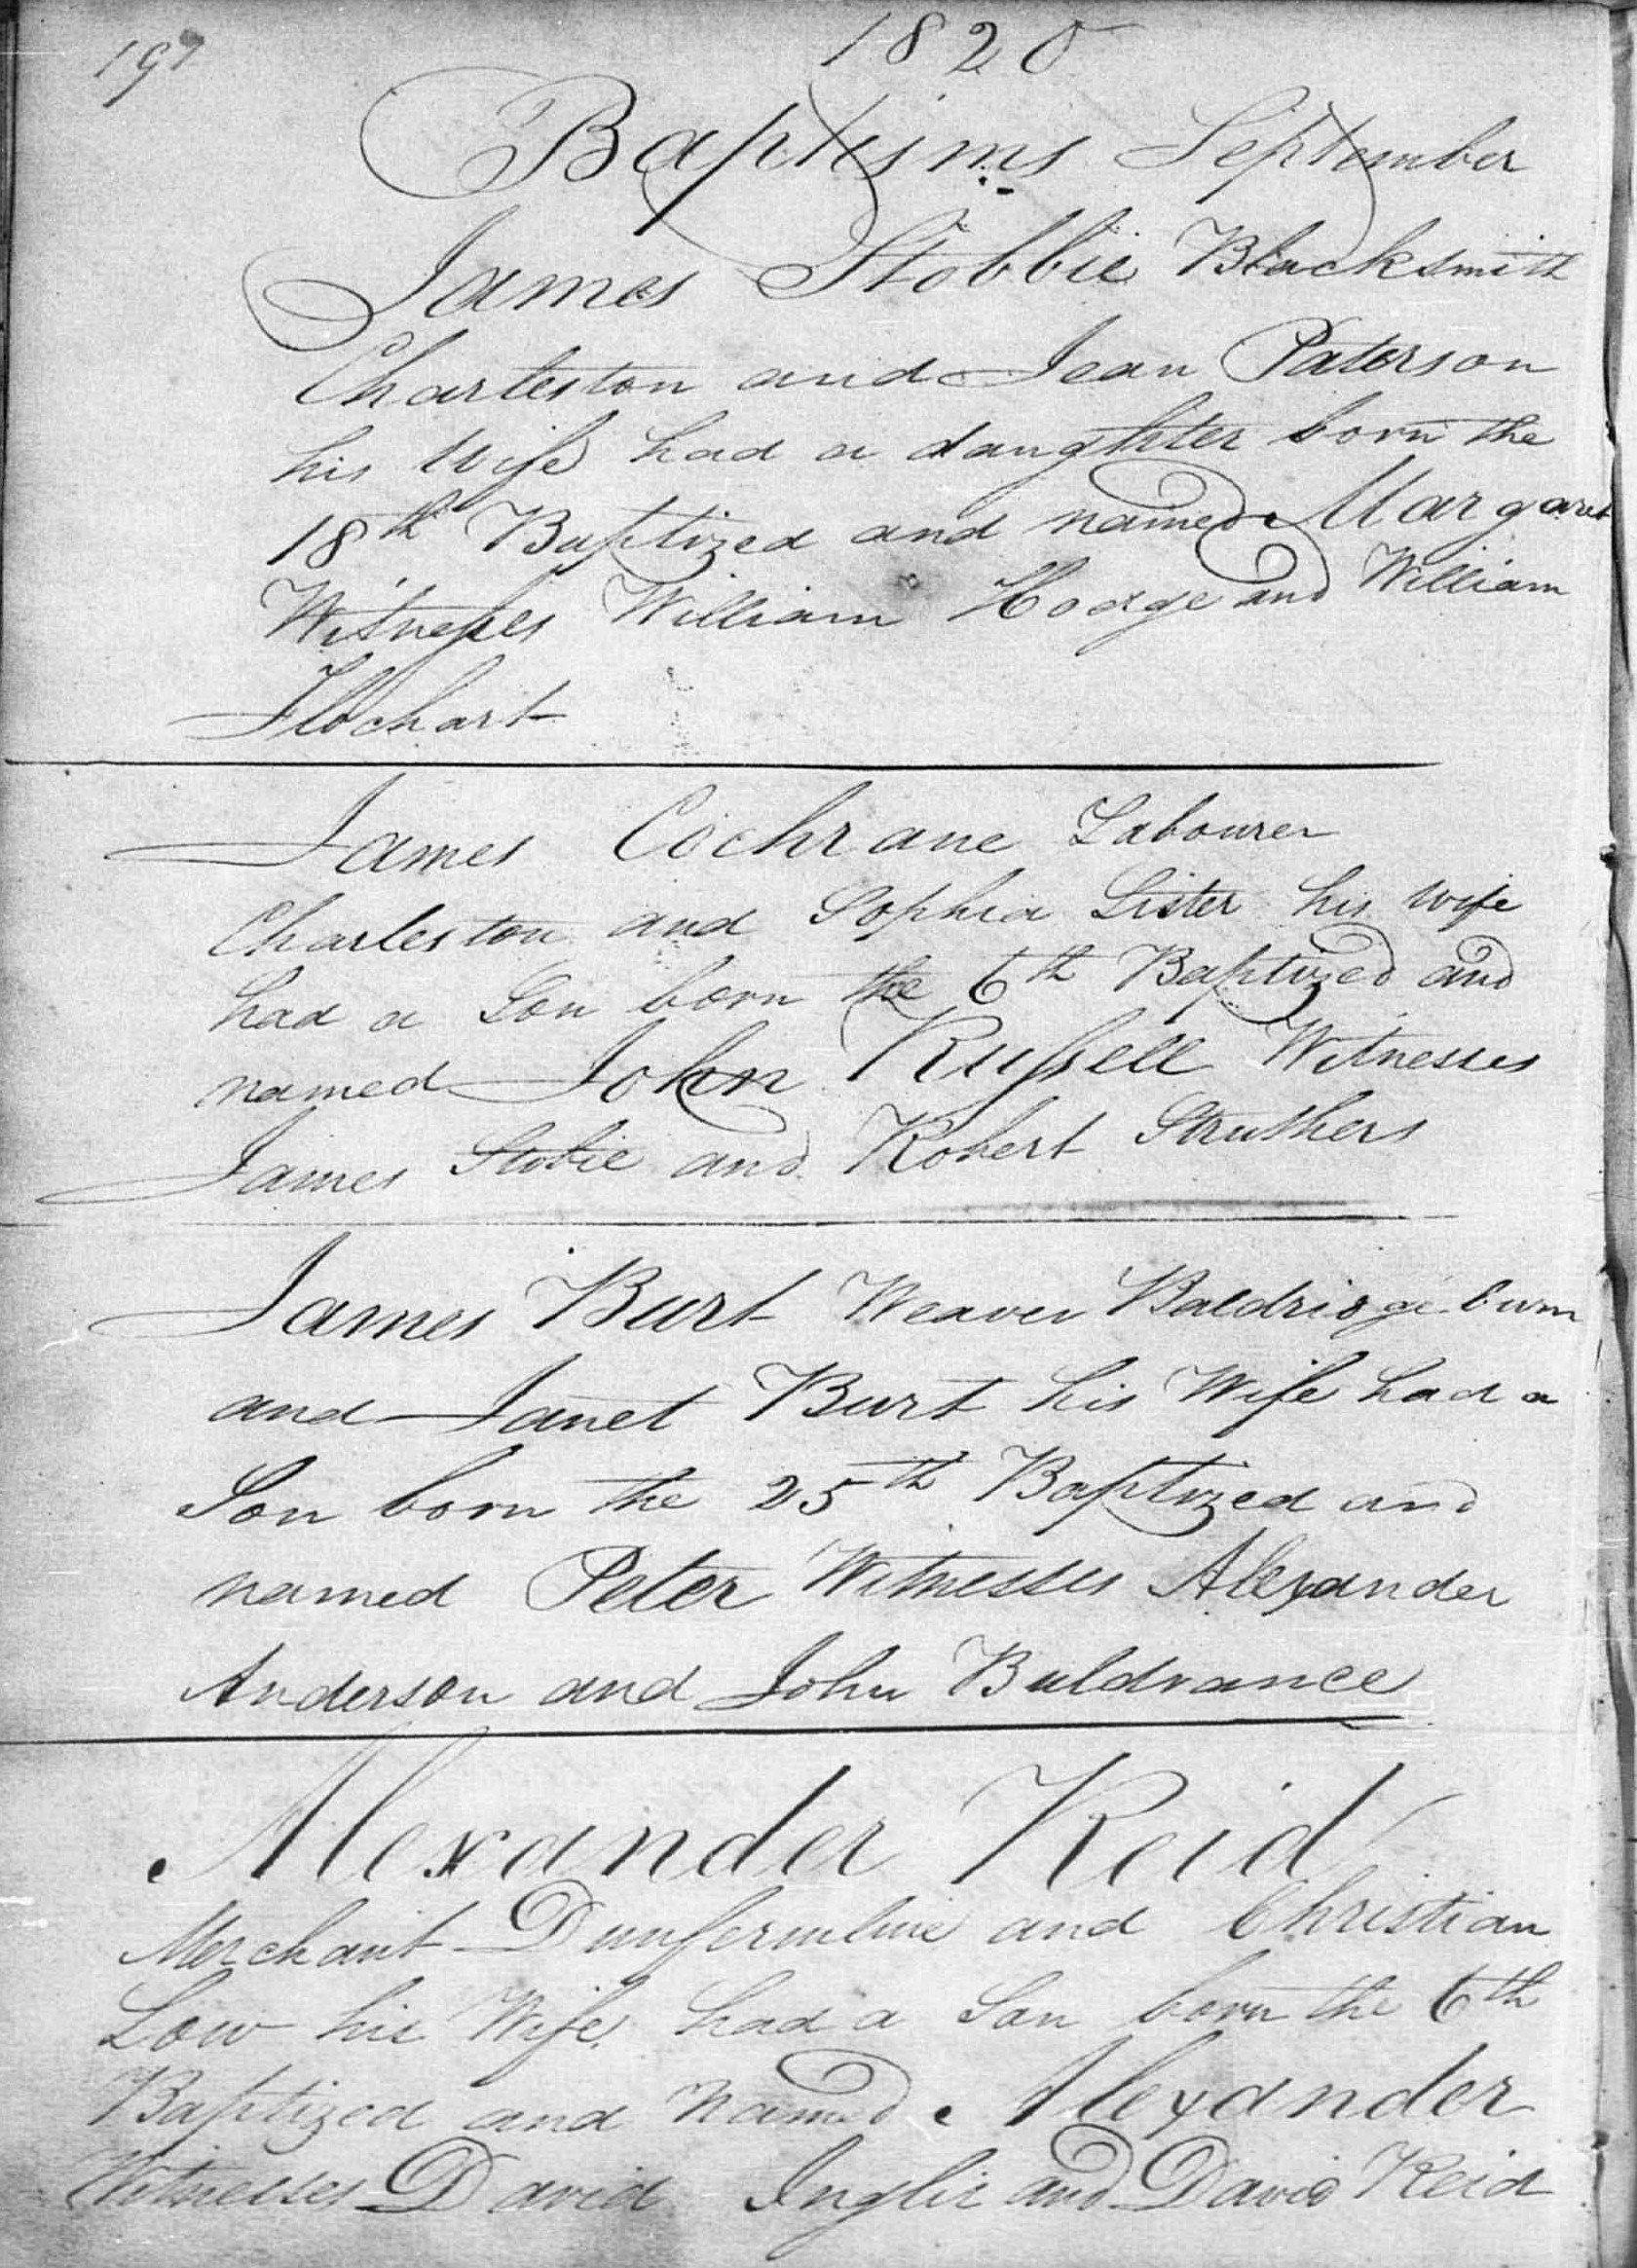 197
1820
Baptisms September
James Stobbie Blacksmith
Charleston and Jean Paterson
his Wife had a daughter born the
18th Baptized and named Margaret
Witnesses William Hodge and William
Flockart
James Cochrane Labourer
Charleston and Sophia Lister his wife
had a Son born the 6th Baptized and
named John Russell Witnesses
James Stobie and Robert Struthers
James Burt Weaver Baldridge burn
and Janet Burt his Wife had a
Son born the 25th Baptized and
named Peter Witnesses Alexander
Anderson and John Buldrance
Alexander Reid
Merchant Dunfermline and Christian
Low his Wife had a Son born the 6th
Baptized and Named Alexander
Witnesses David Inglis and David Reid